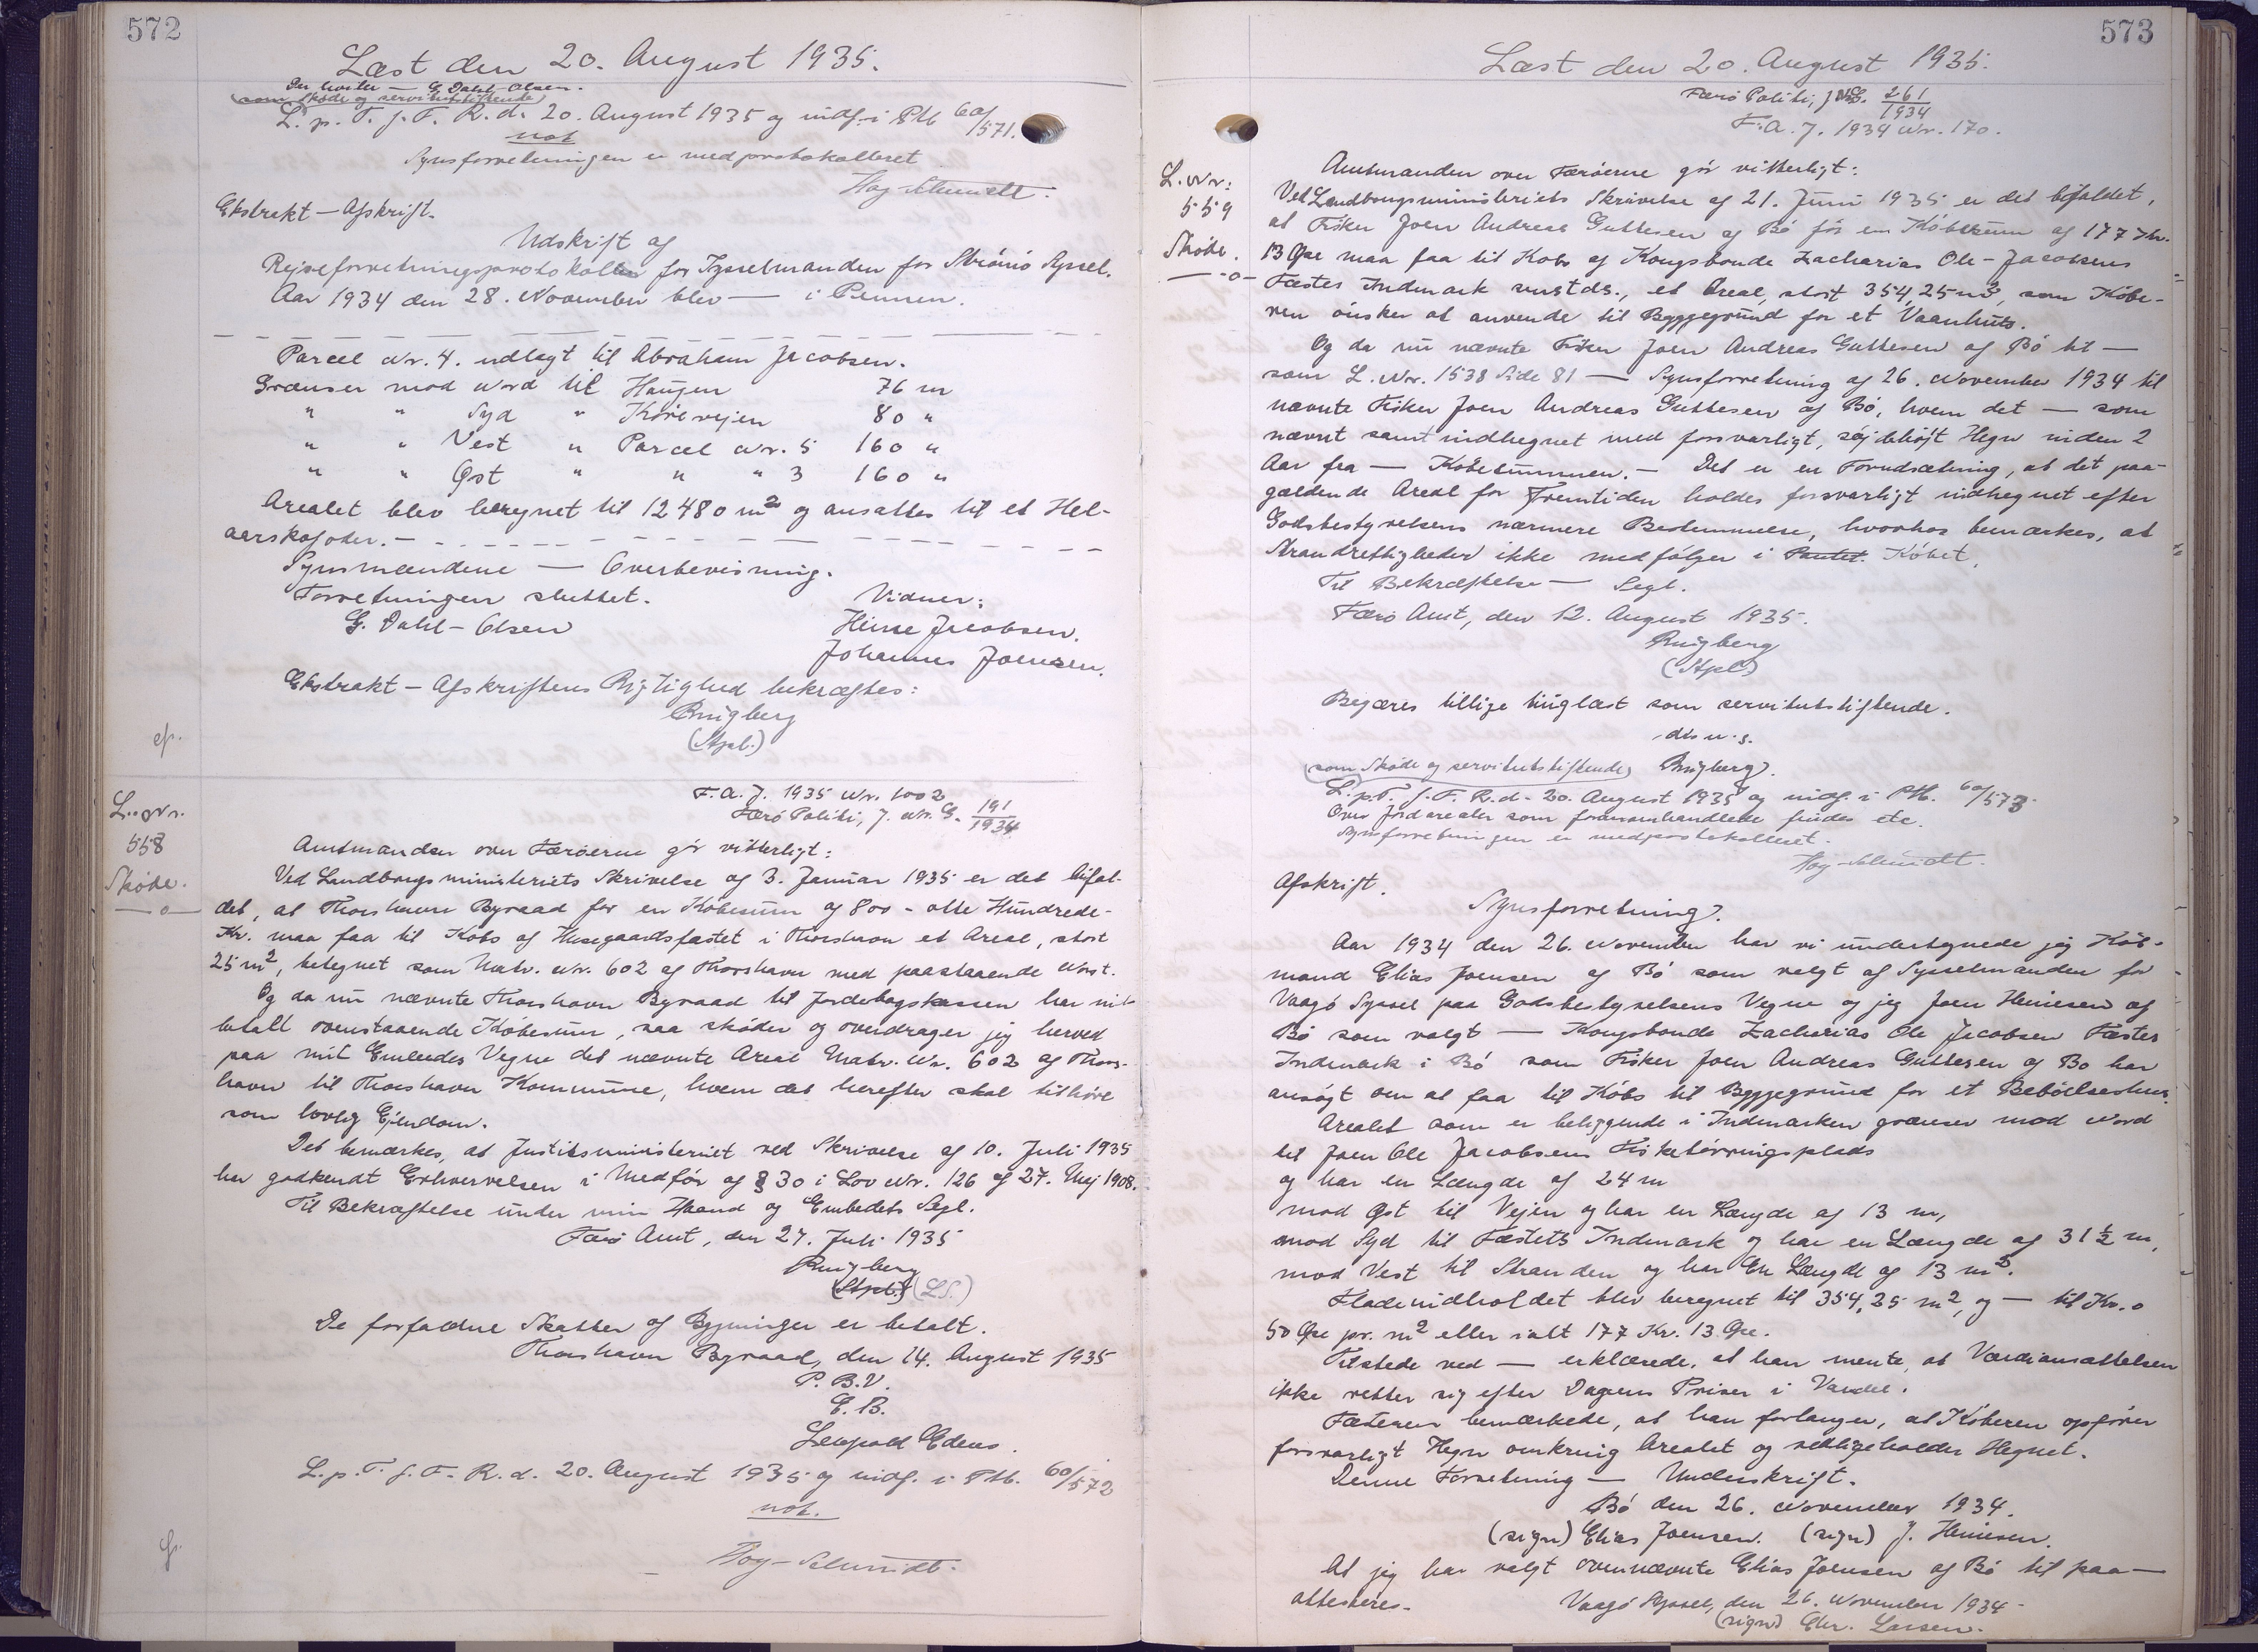 572
Læst den 20. August 1935.
G. Dahl-Olsen.
(som Skøde og servitutstiftende)
L. p. T. f. F. R. d. 20. August 1935 og indf. i Ptb 60/571.
not
Synsforretningen er medprotokolleret
Høy-Schmidt.
Ekstrakt-Afskrift.
Udskrift af
Rejseforretningsprotokollen for Sysselmanden for Strömö Syssel.
Aar 1934 den 28. November blev — i Pennen.
Parcel Nr. 4. udlagt til Abraham Jacobsen.
Grænser mod Nord til Haugen 76 m
" " Syd " Kørevejen 80 "
" " Vest " Parcel Nr. 5 160 "
" " Øst " " " 3 160 "
Arealet blev beregnet til 12480 m² og ansattes til et Hel-
aarskofoder. —
Synsmændene — Overbevisning.
Forretningen sluttet. Vidner:
G. Dahl-Olsen Heine Jacobsen.
Johannes Joensen.
Ekstrakt-Afskriftens Rigtighed bekræftes:
Ringberg
(Stpl.)
L. Nr.
558
Skøde.
—o—
F. A. J. 1935 Nr. 1002
Færø Politi, J. Nr. G. 191/1934
Amtmanden over Færøerne gør vitterligt:
Ved Landbrugsministeriets Skrivelse af 3. Januar 1935 er det bifal-
det, at Thorshavn Byraad for en Købesum af 800 - otte Hundrede -
Kr. maa faa til Købs af Husegaardsfæstet i Thorshavn et Areal, stort
25 m², betegnet som Matr. Nr. 602 af Thorshavn med paastaaende Nøst.
Og da nu nævnte Thorshavn Byraad til Jordebogskassen har ind-
betalt ovenstaaende Købesum, saa skøder og overdrager jeg herved
paa mit Embedes Vegne det nævnte Areal Matr. Nr. 602 af Thors-
havn til Thorshavn Kommune, hvem det herefter skal tilhøre
som lovlig Ejendom.
Det bemærkes, at Justitsministeriet ved Skrivelse af 10. Juli 1935
har godkendt Erhvervelsen i Medfør af § 30 i Lov Nr. 126 af 27. Maj 1908.
Til Bekræftelse under min Haand og Embedets Segl.
Færø Amt, den 27. Juli 1935
Ringberg
(Stpl.) (LS.)
De forfaldne Skatter af Bygninger er betalt.
Thorshavn Byraad, den 14. August 1935
P. B. V.
E. B.
Leopold Edens.
L. p. T. f. F. R. d. 20. August 1935 og indf. i Ptb. 60/572
not.
Høy-Schmidt.
573
Læst den 20. August 1935.
Færø Politi, J. Nr. 261/1934
F. A. J. 1934 Nr. 170.
L. Nr:
559
Skøde.
—o—
Amtmanden over Færøerne gör vitterligt:
Ved Landbrugsministeriets Skrivelse af 21. Juni 1935 er det bifaldet,
at Fisker Joen Andreas Guttesen af Bö för en Købesum af 177 Kr.
13 Øre maa faa til Købs af Kongsbonde Zacharias Ole-Jacobsens
Fæstes Indmark sammestds., et Areal, stort 354,25 m², som Købe-
ren ønsker at anvende til Byggegrund for et Vaanhus.
Og da nu nævnte Fisker Joen Andreas Guttesen af Bö til —
som L. Nr. 1538 Side 81 — Synsforretning af 26. November 1934 til
nævnte Fisker Joen Andreas Guttesen af Bö, hvem det — som
nævnt samt indhegnet med forsvarligt, højt Hegn inden 2
Aar fra — Købesummen. — Det er en Forudsætning, at det paa-
gældende Areal for Fremtiden holdes forsvarligt indhegnet efter
Godsbestyrelsens nærmere Bestemmelse, hvorhos bemærkes, at
Strandrettigheder ikke medfølger i Pantet. Købet.
Til Bekræftelse — Segl.
Færø Amt, den 12. August 1935.
Ringberg
(Stpl.)
Begæres tillige tinglæst som servitutstiftende.
d. u. s.
(som Skøde og servitutstiftende) Ringberg.
L. p. T. f. F. R. d. 20. August 1935 og indf. i Ptb. 60/573.
Over Jordarealer som foranomhandlede findes etc.
Synsforretningen er medprotokolleret.
Høy-Schmidt.
Afskrift.
Synsforretning.
Aar 1934 den 26. November har vi undertegnede jeg Køb-
mand Elias Joensen af Bö som valgt af Sysselmanden for
Vaagø Syssel paa Godsbestyrelsens Vegne og jeg Joen Heinesen af
Bö som valgt — Kongsbonde Zacharias Ole Jacobsen Fæstes
Indmark i Bö som Fisker Joen Andreas Guttesen af Bö har
ansøgt om at faa til Købs til Byggegrund for et Beboelseshus.
Arealet som er beliggende i Indmarken grænser mod Nord
til Joen Ole Jacobsens Fisketørringsplads
og har en Længde af 24 m
mod Øst til Vejen og har en Længde af 13 m,
mod Syd til Fæstets Indmark og har en Længde af 31½ m,
mod Vest til Stranden og har En Længde af 13 m².
Fladeindholdet blev beregnet til 354,25 m², og — til Kr. 0
50 Øre pr. m² eller ialt 177 Kr. 13 Øre.
Tilstede ved — erklærede, at han mente, at Værdiansættelsen
ikke retter sig efter Dagens Priser i Værdi.
Fæsteren bemærkede, at han forlanger, at Køberen opfører
forsvarligt Hegn omkring Arealet og vedligeholder Hegnet.
Denne Forretning — Underskrift.
Bö den 26. November 1934.
(sign) Elias Joensen. (sign) J. Heinesen.
At jeg har valgt ovennævnte Elias Joensen af Bö til paa —
attesteres.
Vaagø Syssel, den 26. November 1934
(sign) Chr. Larsen.